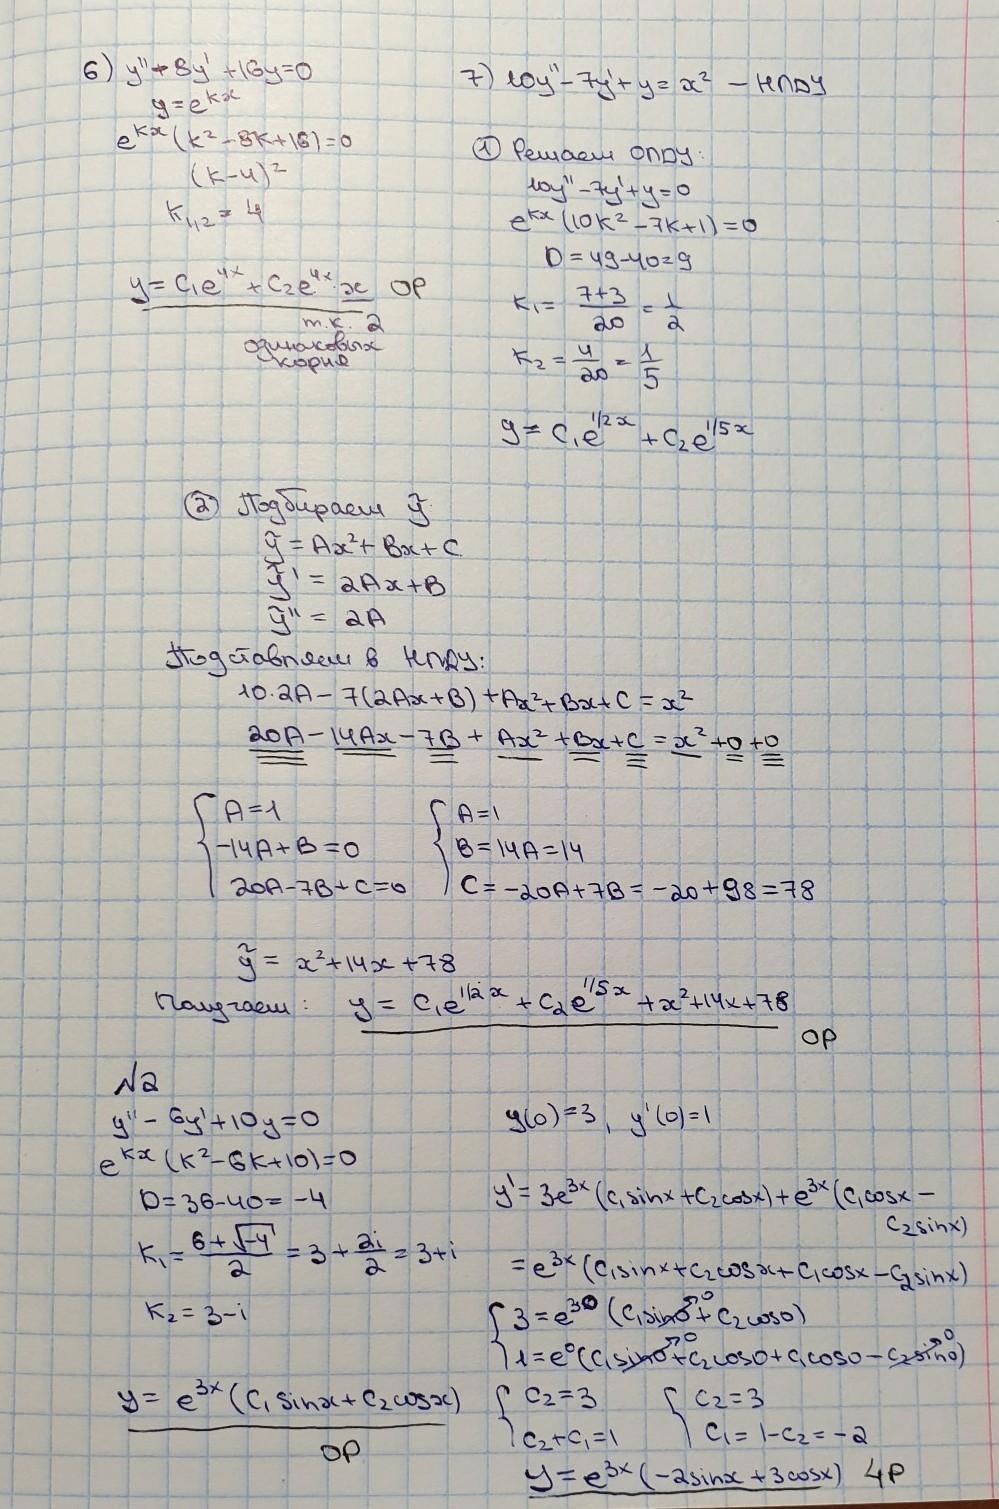 6) y'' + 8y' + 16y = 0
y = e^{kx}
e^{kx} (k² - 8k + 16) = 0
(k-4)²
k_{1,2} = 4
y = C₁e^{4x} + C₂e^{4x}·x ОР
т.к. 2
одинаковых
корня
7) 10y'' - 7y' + y = x² - НЛДУ
① Решаем ОЛДУ:
10y'' - 7y' + y = 0
e^{kx} (10k² - 7k + 1) = 0
D = 49 - 40 = 9
k₁ = (7+3)/20 = 1/2
k₂ = 4/20 = 1/5
y = C₁e^{1/2 x} + C₂e^{1/5 x}
② Подбираем ỹ
ỹ = Ax² + Bx + C
ỹ' = 2Ax + B
ỹ'' = 2A
Подставляем в НЛДУ:
10·2A - 7(2Ax + B) + Ax² + Bx + C = x²
20A - 14Ax - 7B + Ax² + Bx + C = x² + 0 + 0
{ A = 1 { A = 1
-14A + B = 0 B = 14A = 14
20A - 7B + C = 0 C = -20A + 7B = -20 + 98 = 78
ỹ = x² + 14x + 78
Получаем: y = C₁e^{1/2 x} + C₂e^{1/5 x} + x² + 14x + 78
ОР
N2
y'' - 6y' + 10y = 0 y(0) = 3, y'(0) = 1
e^{kx} (k² - 6k + 10) = 0
D = 36 - 40 = -4
k₁ = (6 + √-4)/2 = 3 + 2i/2 = 3 + i
k₂ = 3 - i
y = e^{3x} (C₁ sinx + C₂ cosx)
ОР
y' = 3e^{3x} (C₁sinx + C₂cosx) + e^{3x} (C₁cosx -
C₂sinx)
= e^{3x} (C₁sinx + C₂cosx + C₁cosx - C₂sinx)
{ 3 = e^{3·0} (C₁sin0→0 + C₂cos0)
1 = e⁰ (C₁sin0→0 + C₂cos0 + C₁cos0 - C₂sin0→0)
{ C₂ = 3 { C₂ = 3
C₂ + C₁ = 1 C₁ = 1 - C₂ = -2
y = e^{3x} (-2sinx + 3cosx) ЧР